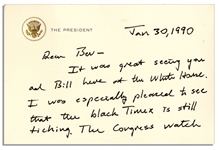 THE PRESIDENT
Jan 30, 1990
Dear Bev-
It was great seeing you
and Bill here at the White House.
I was especially pleased to see
that the black Timex is still
ticking The Congress watch